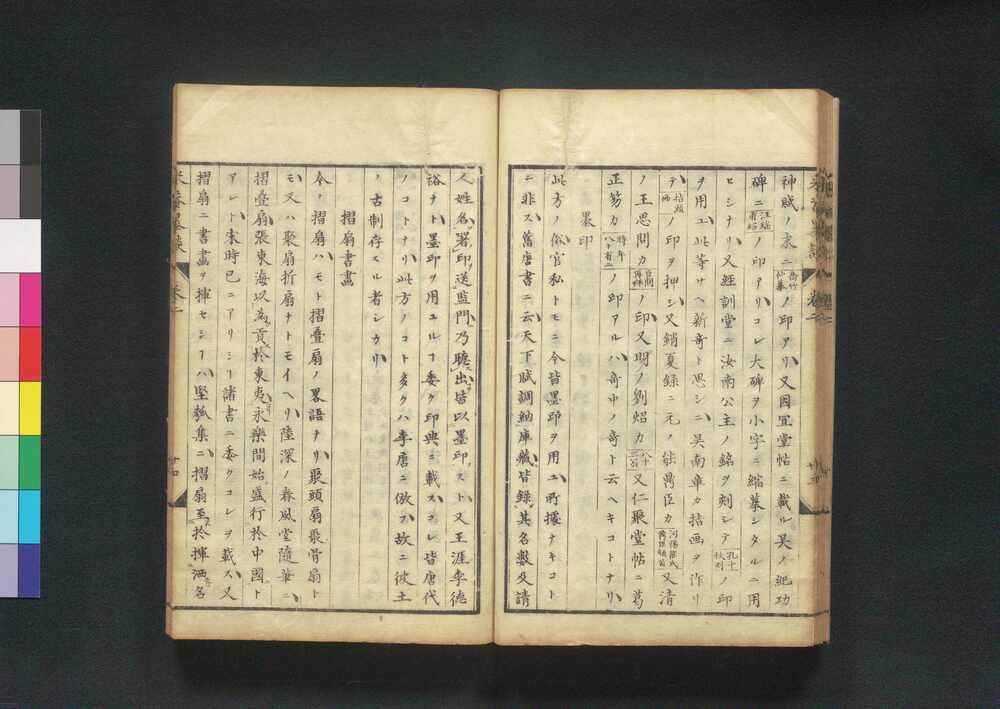 神賦ノ末ニ喬竹仙菴ノ印アリ又因宜堂帖ニ載ル吳ノ紀功
碑ニ汪站看碣ノ印アリコレ大碑ヲ小字ニ縮摹シタルニ用
ヒシナリ又經訓堂ニ汝南公主ノ銘ヲ刻シテ孔千秋刻ノ印
ヲ用ユ此等サヘ新奇ト思シニ吳南皐カ括画ヲ作リ
テ拈頭画ノ印ヲ押シ又銷夏錄ニ元ノ能禺臣カ又清
ノ王思問カ ノ印又明ノ劉炤カ八十三翁又仁聚堂帖ニ葛
正笏カ時年八十有二ノ印アルハ奇中ノ奇ト云ヘキコトナリ
墨印
此方ノ俗官私トモニ今皆墨印ヲ用ユ所據ナキコト
ニ非ス舊唐書ニ云天下賦調納庫藏皆錄其名數及請
人姓名署印送監門乃聽出皆以墨印スト又王涯李德
裕ナト墨印ヲ用ユルヿ委ク印典ニ載スコレ皆唐代
ノコトナリ此方ノコト多クハ李唐ニ倣フ故ニ彼土
ノ古制存スル者シカリ
摺扇書畫
今ノ摺扇ハモト摺疊扇ノ畧語ナリ聚頭扇聚骨扇ト
モ又ハ聚扇折扇ナトモイヘリ陸深ノ春風堂隨筆ニ
摺疊扇張東海以為貢於東夷永樂間始盛行於中國ト
アレト宋時已ニアリシヿ諸書ニ委クコレヲ載ス又
摺扇ニ書畫ヲ揮セシヿハ堅瓠集ニ摺扇至於揮洒名